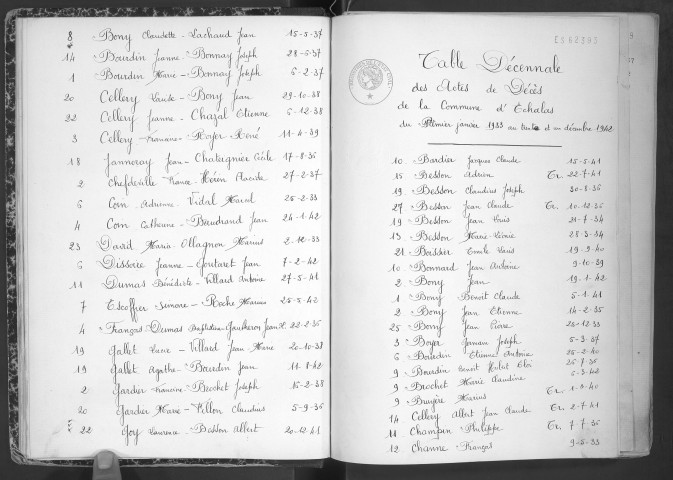 8 Bony Claudette - Lachaud Jean 15-5-37
14 Bourdin Jeanne - Bonnay Joseph 28-5-37
1 Bourdin Marie - Bonnay Joseph 6-2-37
20 Cellery Laude - Bony Jean 29-10-38
22 Cellery Jeanne - Chazal Etienne 6-12-38
3 Cellery Francine - Royer René 11-4-39
18 Janneray Jean - Chataignier Cécile 17-8-36
2 Chefdeville France - Hérin Placide 27-2-37
6 Coin Adrienne - Vidal Marcel 25-2-33
4 Coin Catherine - Beaudrand Jean 24-1-42
23 David Maria - Ollagnon Marius 2-12-33
6 Dissoire Jeanne - Goutaret Jean 7-2-42
11 Dumas Bénédicte - Villard Antoine 27-5-41
7 Escoffier Simone - Roche Marius 25-5-42
4 François Dumas - Gaucheron Jean 22-2-36
19 Gallet Lucie - Villard Jean Marie 20-10-38
19 Gallet Agathe - Bourdin Jean 11-8-42
2 Gardier Francine - Brochet Joseph 15-2-38
20 Gardier Marie - Villon Claudius 5-9-36
22 Goy Laurence - Besson Albert 20-12-41
Table Décennale
des Actes de Décès
de la Commune d'Echalas
du Premier janvier 1933 au trente et un décembre 1942
10 Bardier Jacques Claude 15-5-41
15 Besson Adrien Tr. 22-7-41
19 Besson Claudius Joseph 30-8-36
27 Besson Jean Claude Tr. 10-12-36
19 Besson Jean Louis 21-7-34
13 Besson Marie Léonie 28-3-34
21 Boissier Emile Louis 19-9-40
10 Bonnard Jean Antoine 9-10-39
2 Bony Jean 19-1-42
1 Bony Benoit Claude 5-1-41
2 Bony Jean Etienne 14-2-35
25 Bony Jean Pierre 26-12-33
3 Boyer Germain Joseph 5-3-37
6 Bourdin Etienne Antoine 25-2-40
9 Bourdin Benoit 26-7-36
9 Brochet Marie Claudine 6-3-42
9 Bruyère Marius Tr. 1-2-40
14 Cellery Albert Jean Claude Tr. 2-7-41
11 Champin Philippe Tr. 7-7-36
12 Channe François 9-5-33